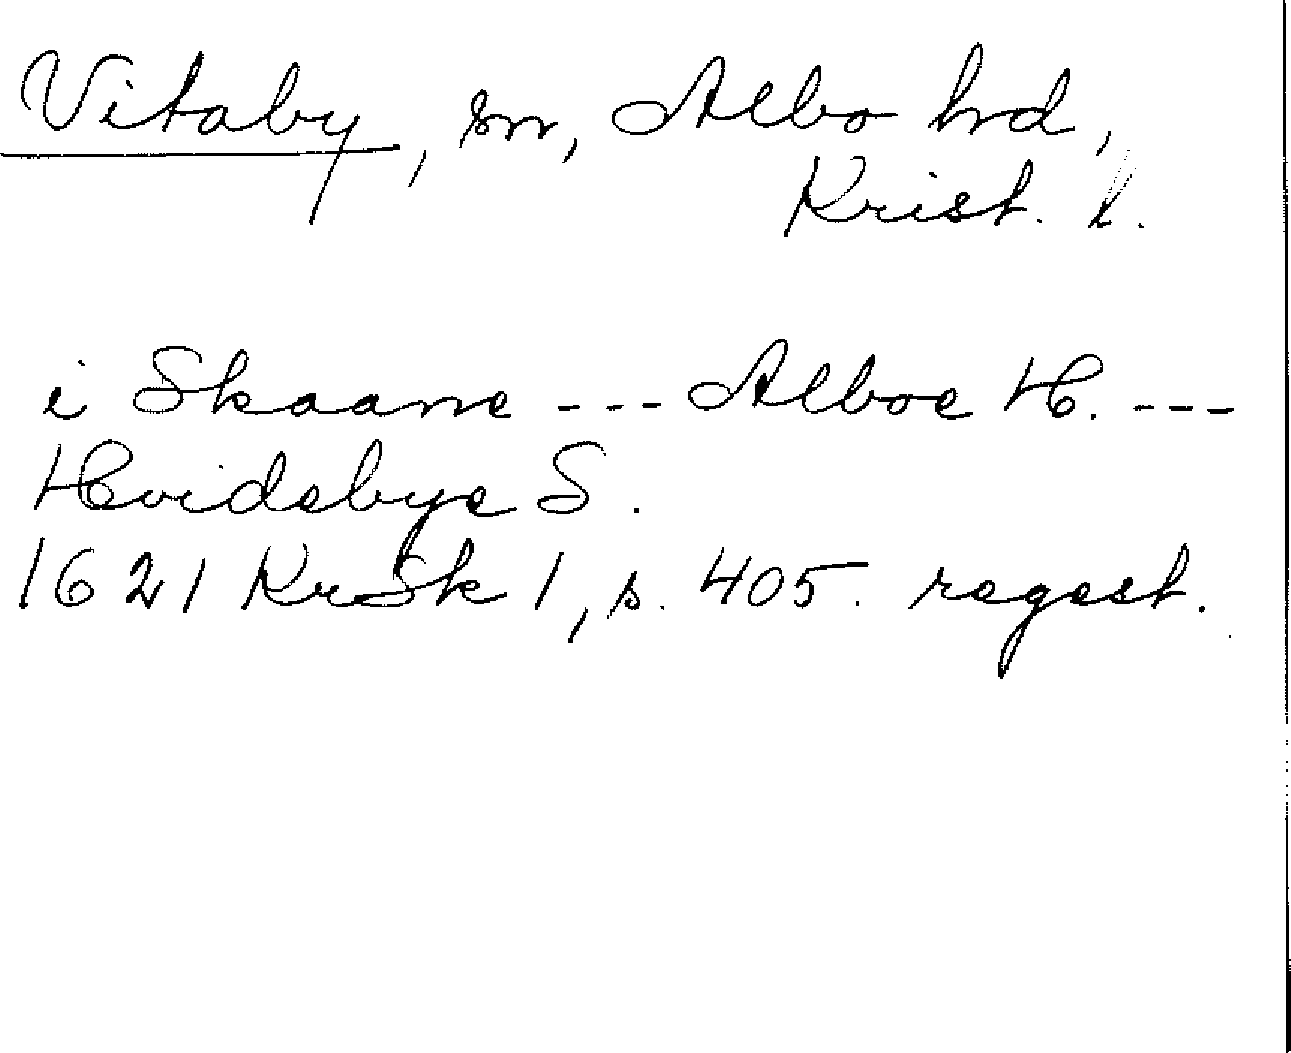 Vitaby, sn, Albo hd,
Krist. l.
i Skaane --- Alboe H. ---
Hvidebye S.
1621 KrSk 1, s. 405. regest.